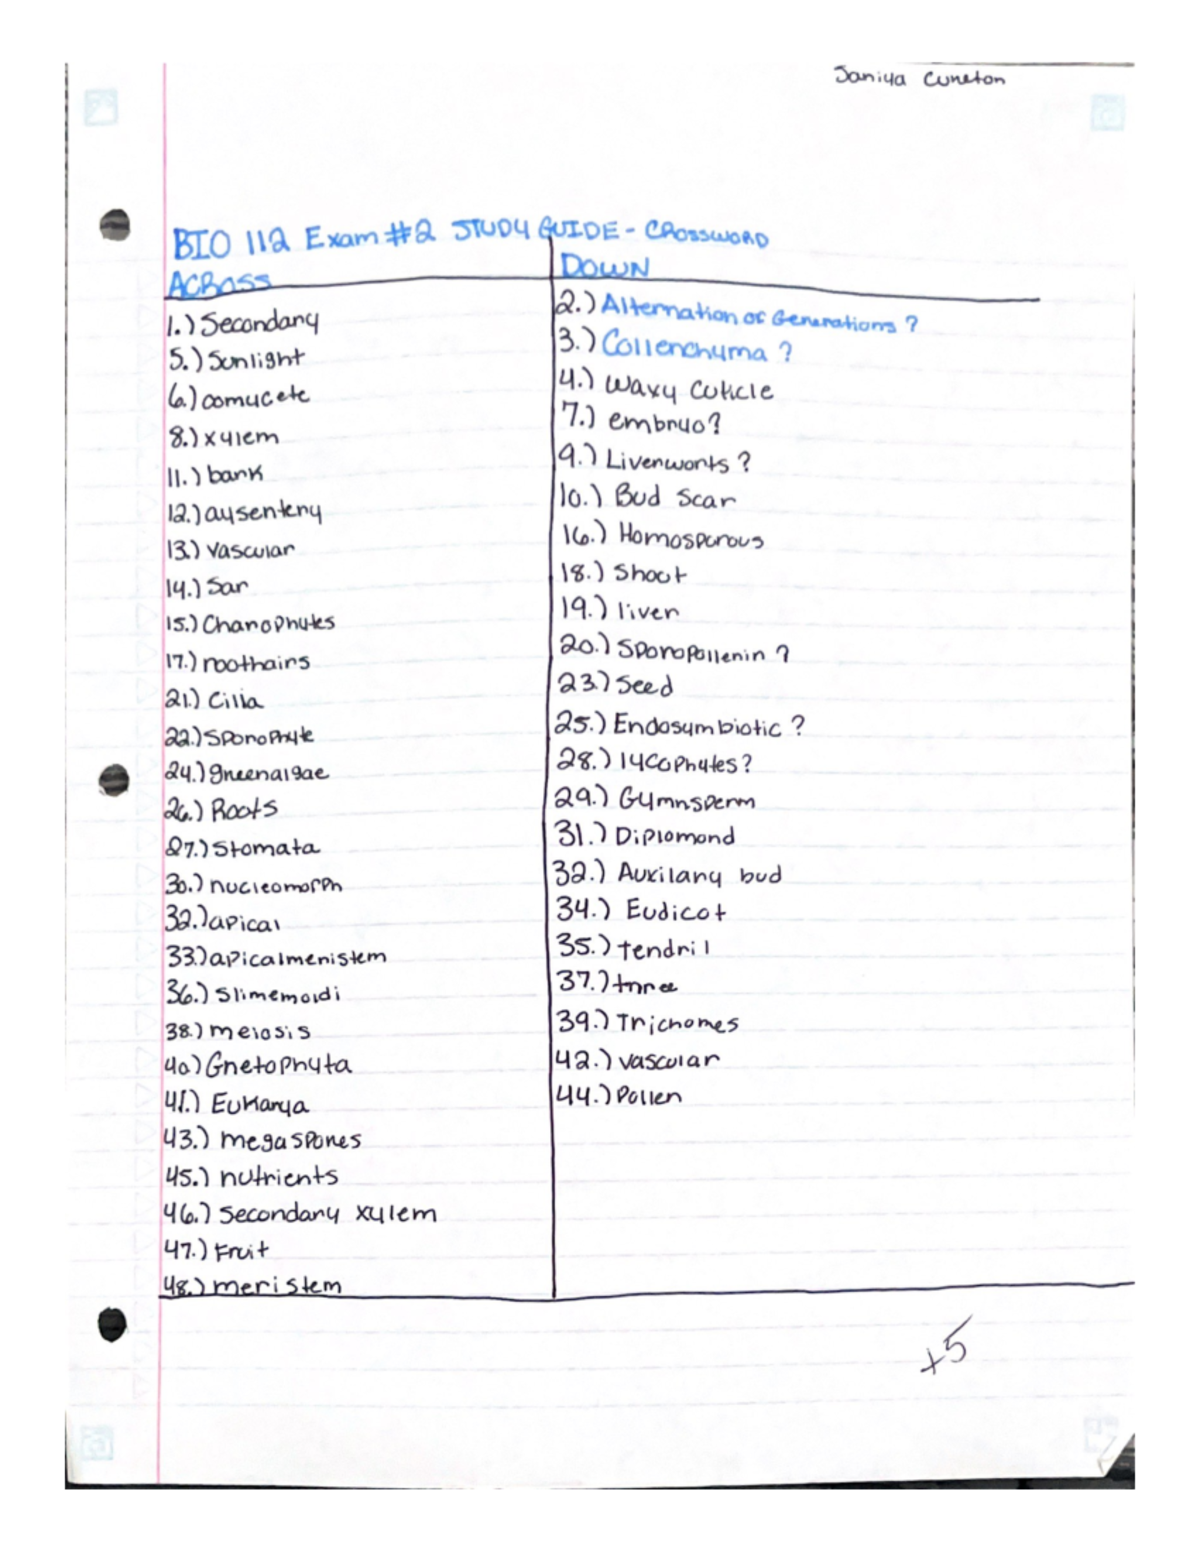 Janiya Cureton
BIO 112 Exam #2 STUDY GUIDE - CROSSWORD
ACROSS
1.) Secondary
5.) Sunlight
6.) oomycete
8.) xylem
11.) bark
12.) dysentery
13.) vascular
14.) Sar
15.) Charophytes
17.) roothairs
21.) Cilia
22.) Sporophyte
24.) greenalgae
26.) Roots
27.) Stomata
30.) nucleomorph
32.) apical
33.) apicalmeristem
36.) Slimemoldi
38.) meiosis
40.) Gnetophyta
41.) Eukarya
43.) megaspores
45.) nutrients
46.) Secondary xylem
47.) Fruit
48.) meristem
DOWN
2.) Alternation of Generations ?
3.) Collenchyma ?
4.) Waxy Cuticle
7.) embryo?
9.) Liverworts ?
10.) Bud Scar
16.) Homosporous
18.) Shoot
19.) liver
20.) Sporopollenin ?
23.) Seed
25.) Endosymbiotic ?
28.) lycophytes?
29.) Gymnsperm
31.) Diplomond
32.) Auxilary bud
34.) Eudicot
35.) tendril
37.) three
39.) Trichomes
42.) vascular
44.) Pollen
+5